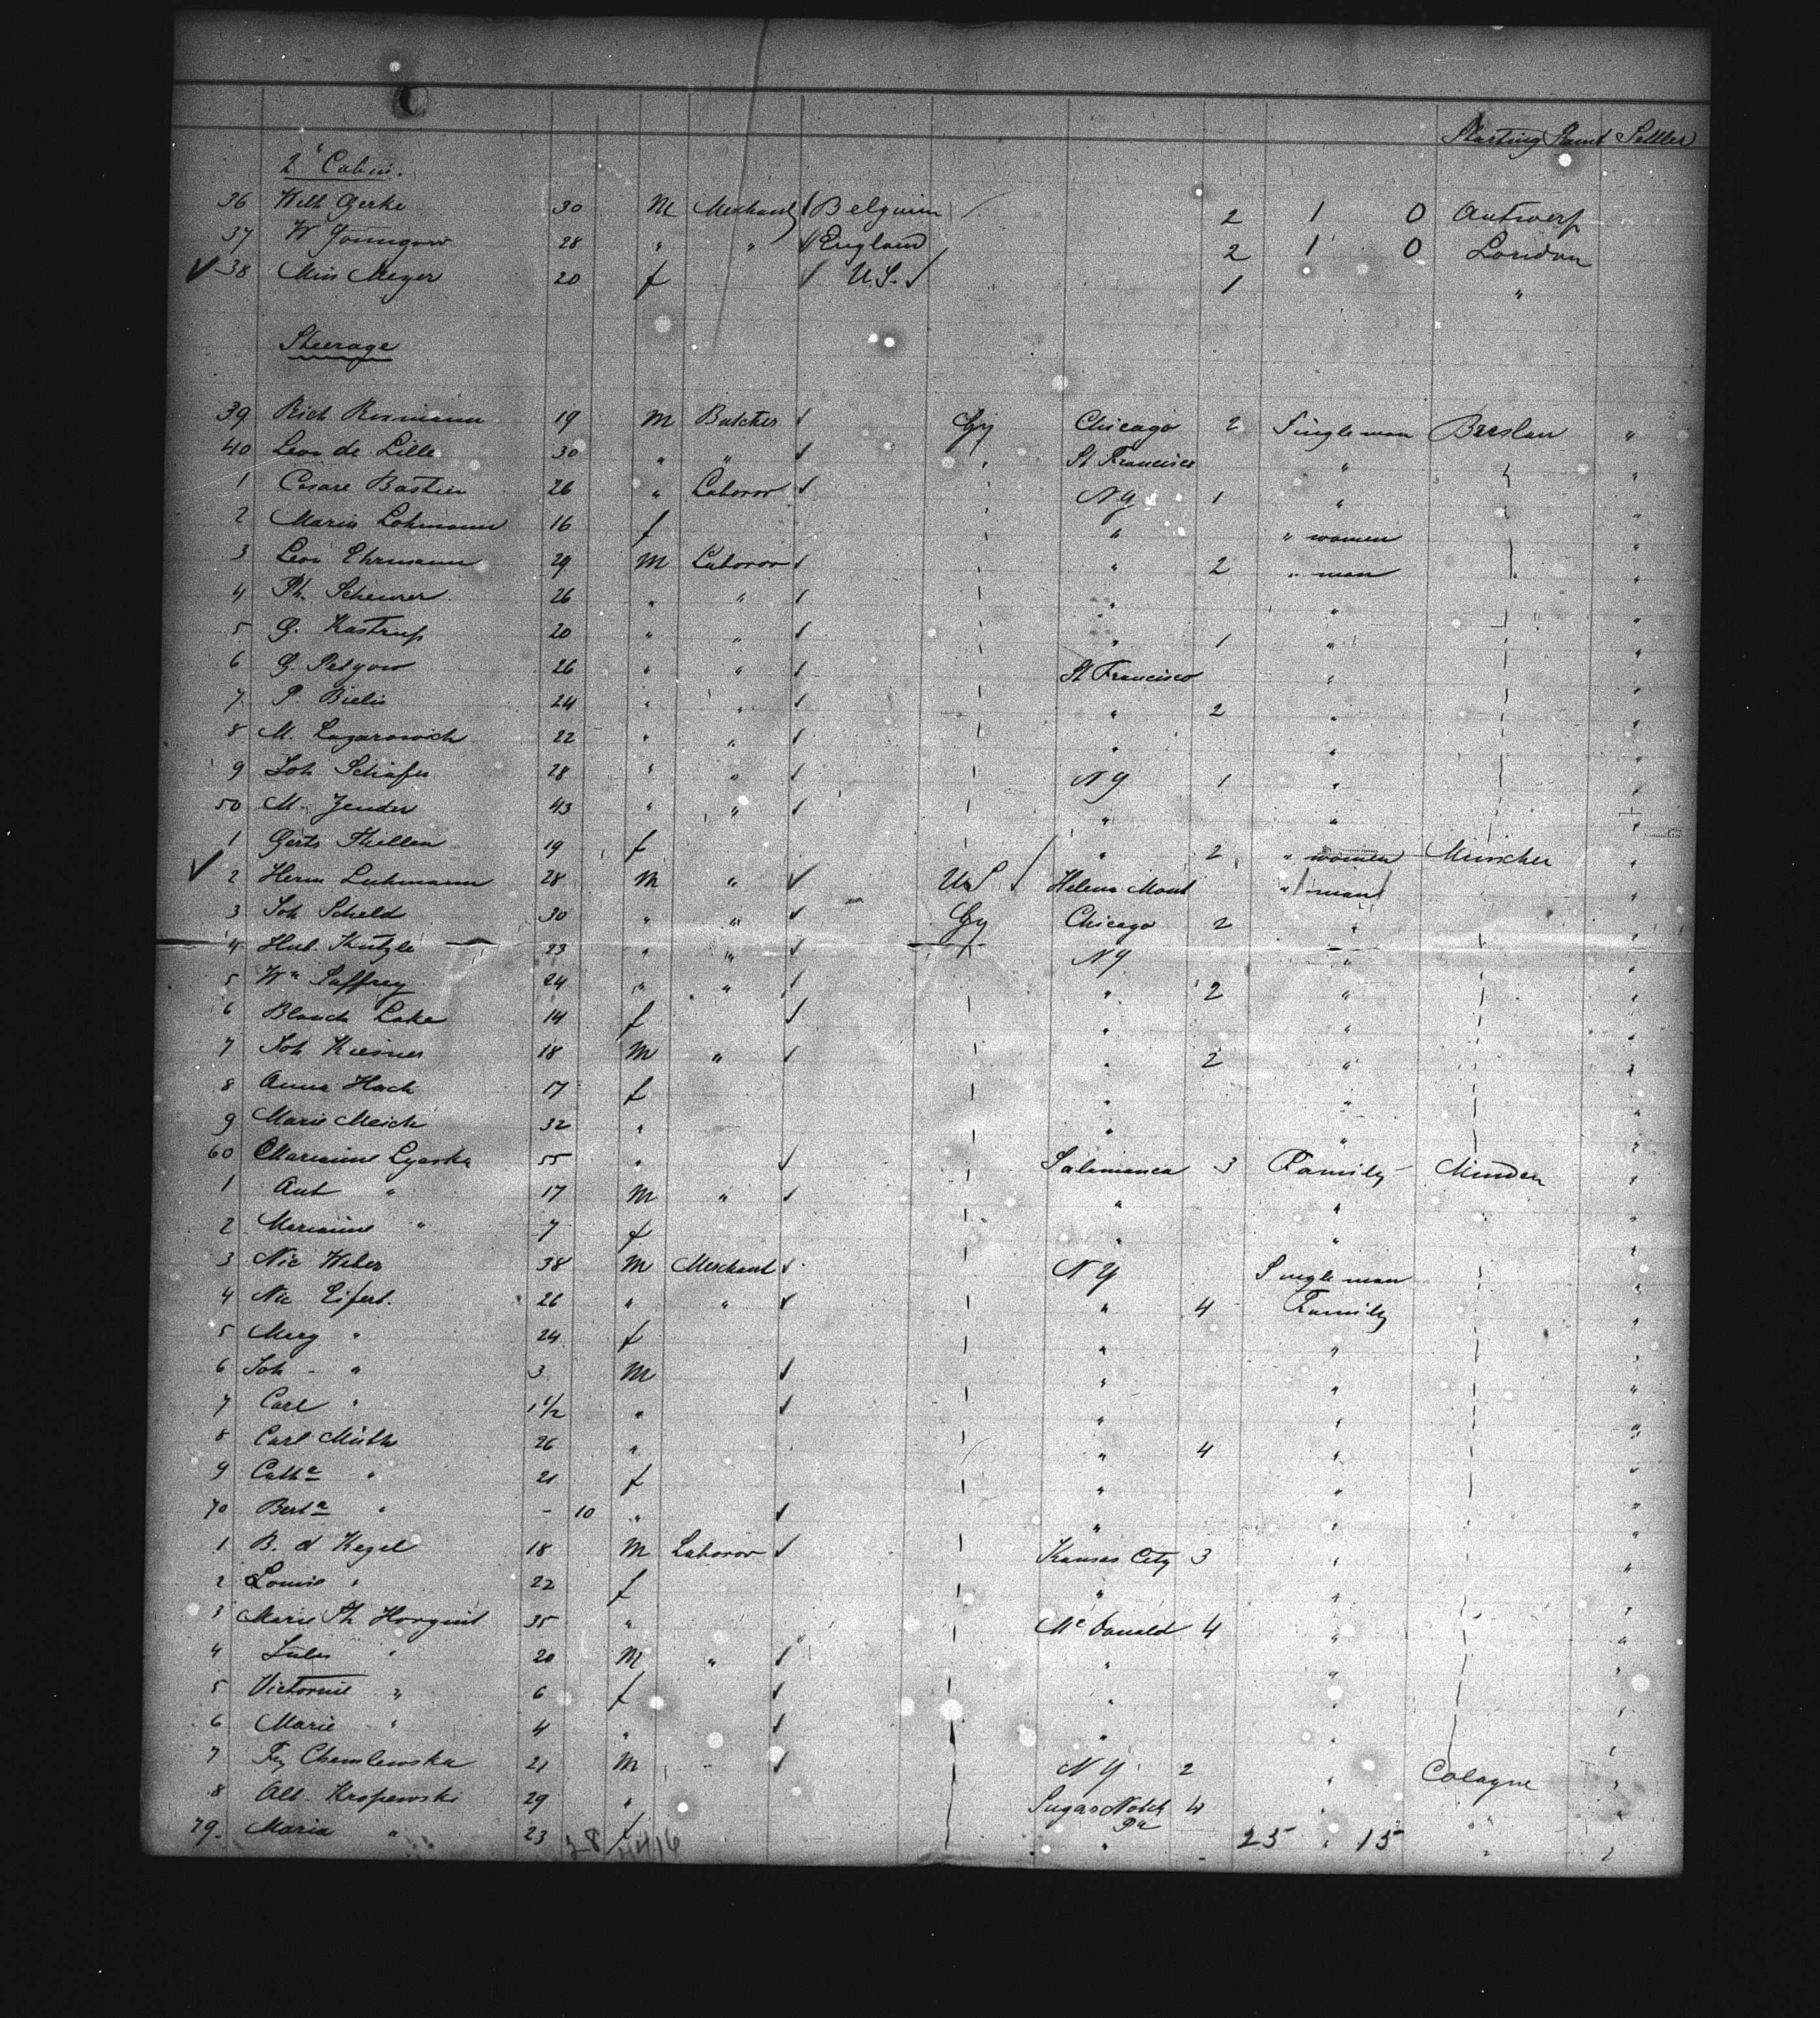 Starting Point Settler
2" Cabin.
36 Wilh Gerke 30 M Merchant Belgium 2 1 0 Antwerp
37 W 28 " " England 2 1 0 London
38 Miss Meyer 20 f U.S. 1 "
Steerage
39 Rich 19 M Butcher Gy Chicago 2 Single man Breslau "
40 Leon de Lille 30 " " " St Francisco " "
1 Cesare Bastien 26 " Laboror " NY 1 " "
2 Maria Lohmann 16 f " " women "
3 Leon Ehrmann 29 M Laboror " 2 " man "
4 Ph. Scheurer 26 " " " " "
5 G. Kastrup 20 " " " 1 " "
6 G. Petyow 26 " " St Francisco " "
7 P. Bielis 24 " " " 2 " "
8 M. Lazarowich 22 " " " " "
9 Joh Schäfer 28 " " NY 1 " "
50 M. Zender 43 " " " " "
1 Gert. Thillen 19 f " 2 " women "
2 Herm Luhmann 28 M " US Helena Mont " man "
3 Joh Scheld 30 " " Gy Chicago 2 " "
4 Hub. Kutzle 23 " " NY " "
5 Wm Saffrey 24 " " " 2 " "
6 Blanch Lake 14 f " " "
7 Joh Kiesner 18 M " " 2 " "
8 Anna Hach 17 f " " "
9 Marie Meich 32 " " " "
60 Marianne Lyaska 55 " Salamanca 3 Family Minden "
1 Ant " 17 M " " " "
2 Marianne " 7 f " " "
3 Nic Weber 38 M Merchant NY Single man "
4 Nic Eifert. 26 " " " 4 Family "
5 Marg " 24 f " " "
6 Joh " 3 M " " "
7 Carl " 1 1/2 " " " "
8 Carl Müth 26 " " 4 " "
9 Cathe " 21 f " " "
70 Berta " - 10 " " " "
1 B. d Kegel 18 M Laboror Kansas City 3 " "
2 Louise " 22 f " " "
3 Marie Ph Horquint 35 " McDonald 4 " "
4 Jules " 20 M " " " "
5 Victorine " 6 f " " "
6 Marie " 4 " " "
7 Fr Chemlewska 21 M NY 2 " Cologne "
8 Alb. Kropewski 29 " Sugar Notch Pa 4 " " "
79. Maria " 23 f " 25 " 15 " "